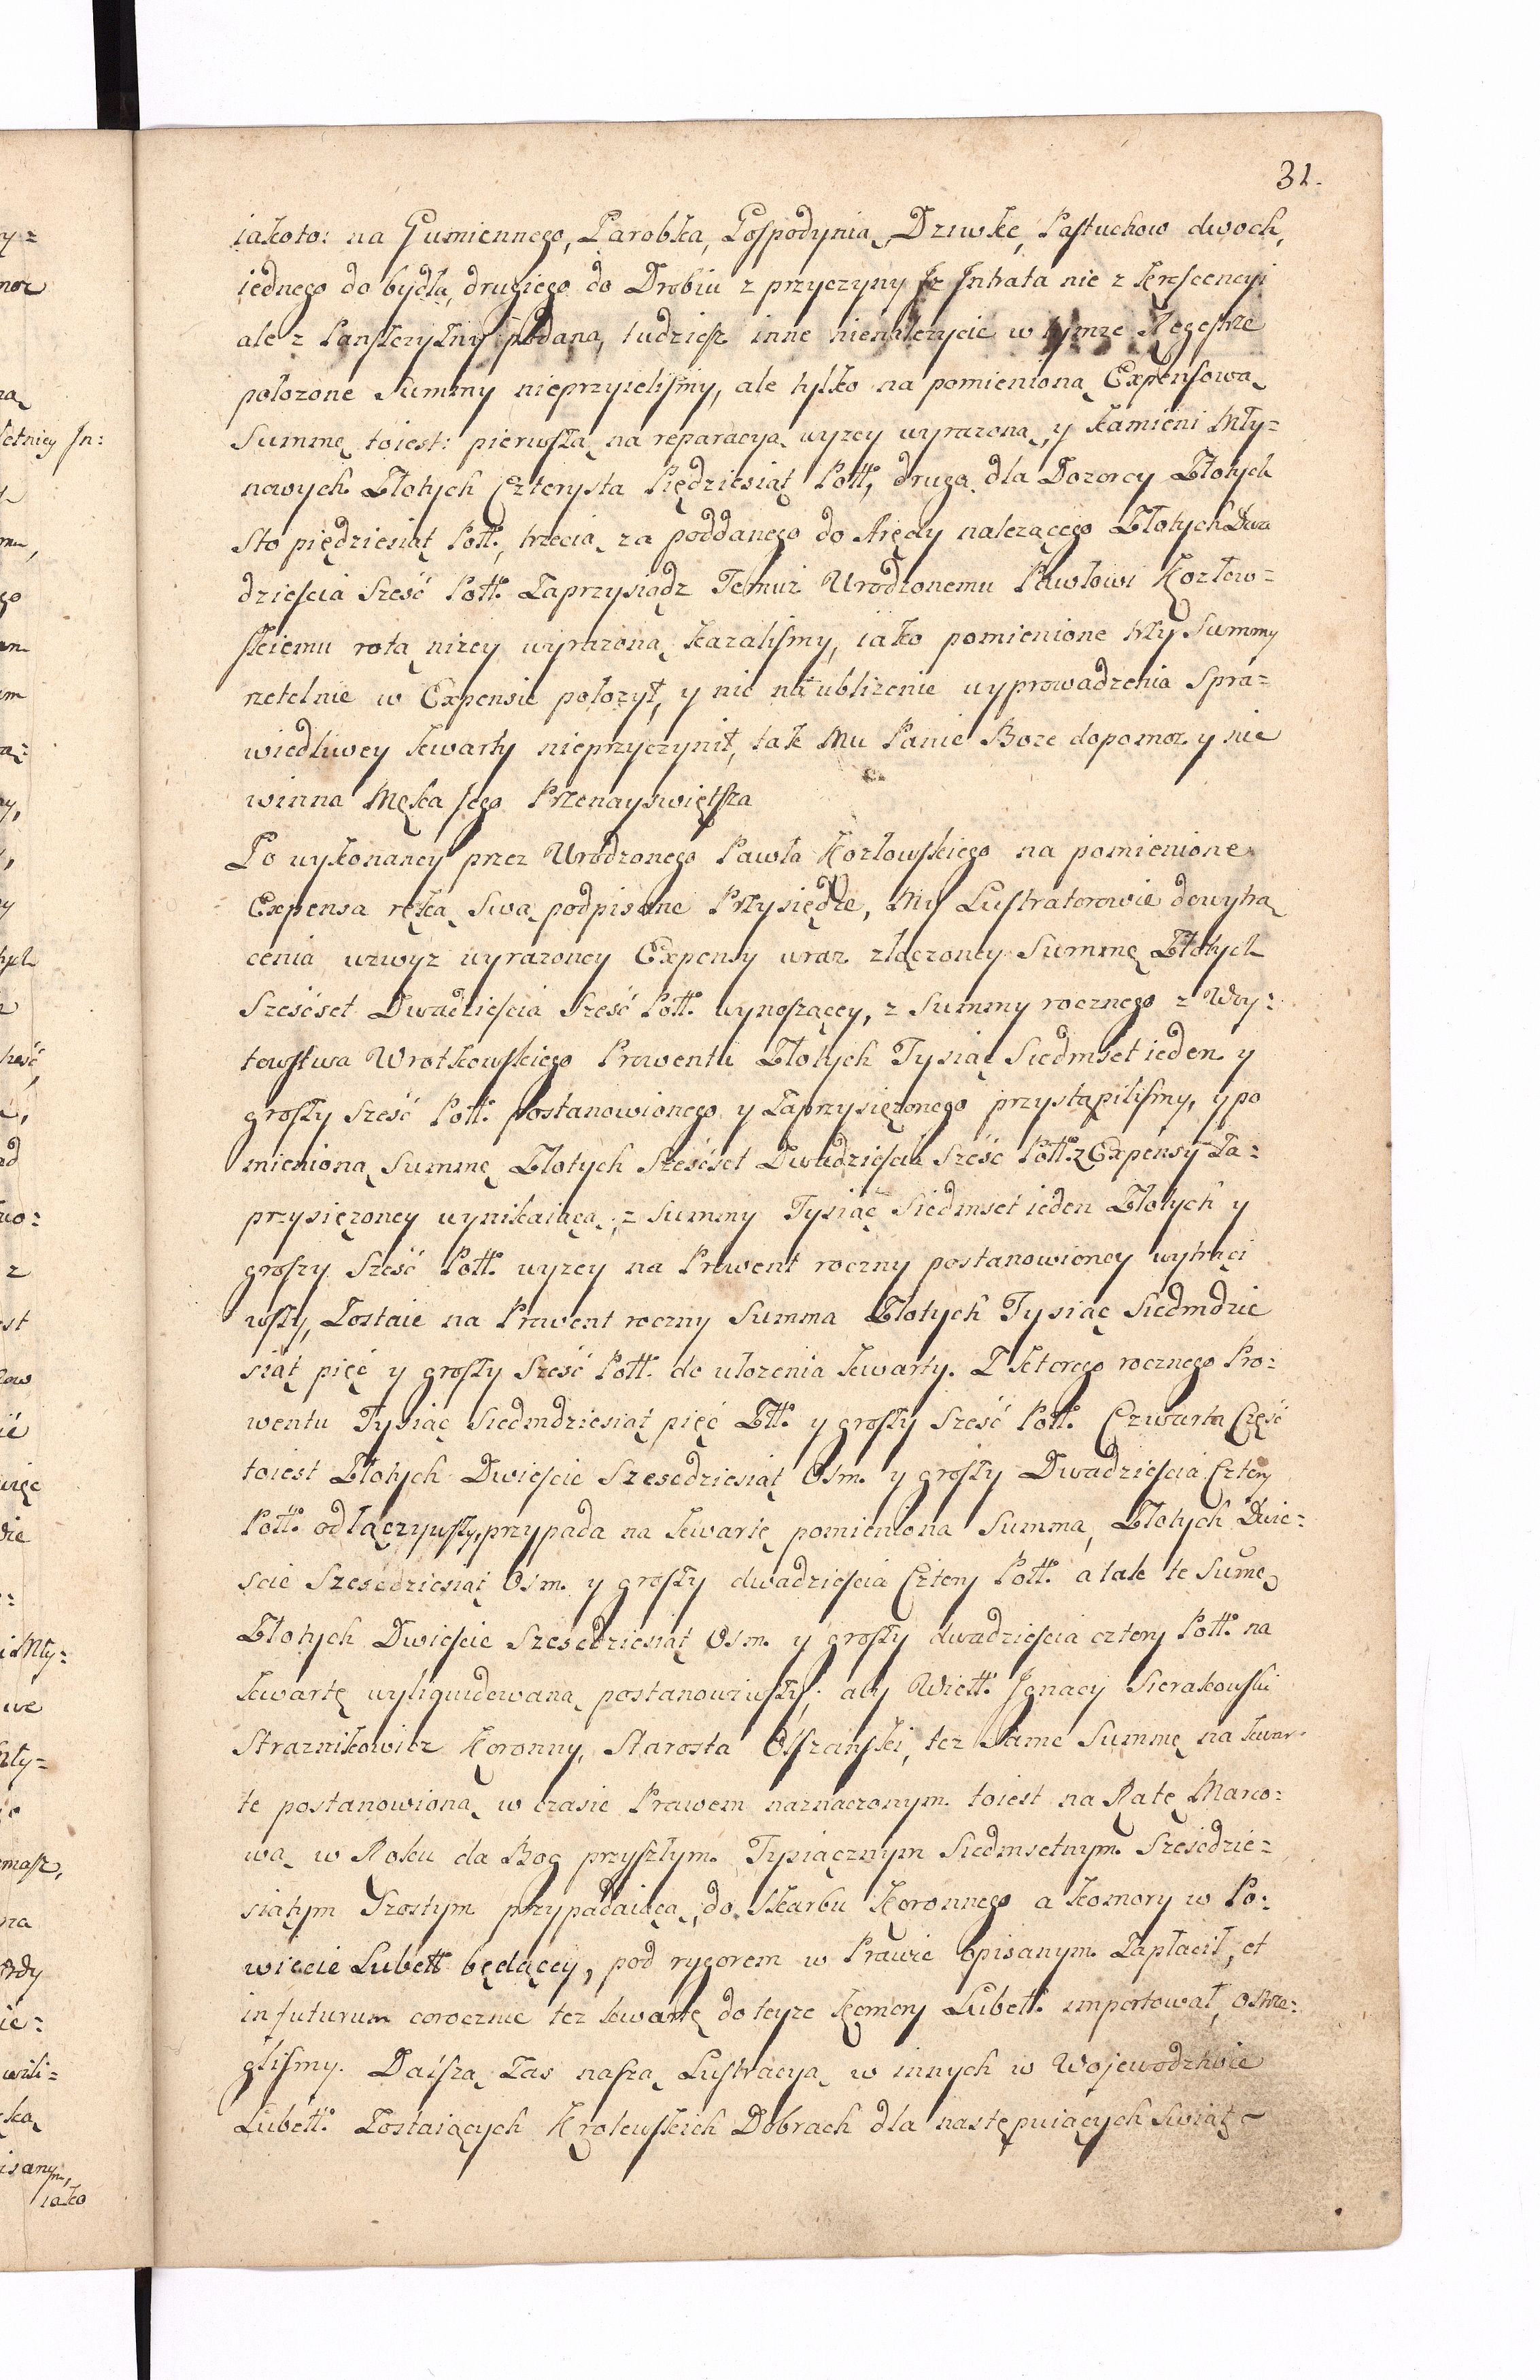 31.
iakoto: na Gumiennego, Parobka, Gospodynią, Dziwkę, Pastuchow dwoch,
iednego do bydła, drugiego do Drobiu z przyczyny Iz Intrata nie z Krescencyi
ale z Panszczyzny podana, tudziesz inne nienależycie w tymże Regestrze
położone Summy nieprzyieliśmy, ale tylko na pomienioną Expensową
Summę toiest: pierwszą na reparacyą wyżey wyrażoną, y Kamieni Mły=
nowych Złotych Czterysta Pięдziesiąt Poll: drugą dla Dozorcy Złotych
Sto pięдziesiąt Poll:, trzecią za poddanego do Aręдy należącego Złotych Dwa
dzieścia Sześć Poll: Zaprzysiądz Temuż Urodzonemu Pawłowi Kozłow=
skiemu rotą niżey wyrażoną kazaliśmy, iako pomienione trzy Summy
rzetelnie w Expensie położył, y nic na ubliżenie wyprowadzenia Spra=
wiedliwey kwarty nieprzyczynił, tak Mu Panie Boże dopomoż y nie
winna Męka Jego Przenayswiętsza
Po wykonaney przez Urodzonego Pawła Kozłowskiego na pomienione
Expensa ręką swą podpisane Przysiędze, My Lustratorowie dowytrą
cenia wzwyż wyrażoney Expensy wraz złączoney Summę Złotych
Sześćset Dwadzieścia Sześć Poll: wynoszącey, z Summy rocznego z Woy=
towstwa Wrotkowskiego Prowentu Złotych Tysiąc Siedmset ieden y
groszy Sześć Poll: postanowionego y Zaprzysiężonego przystąpiliśmy, y po
mienioną Summę Złotych Sześćset Dwadzieścia Sześć Poll: z Expensy Za=
przysiężoney wynikaiącą, z Summy Tysiąc Siedmset ieden Złotych y
groszy Sześć Poll: wyżey na Prowent roczny postanowioney wytrąci
wszy, Zostaie na Prowent roczny Summa Złotych Tysiąc Siedmdzie
siąt pięć y groszy Sześć Poll: do ułożenia kwarty. Z ktorego rocznego Pro=
wentu Tysiąc Siedmdziesiąt pięć Zll: y groszy Sześć Poll: Czwarta Część
toiest Złotych Dwieście Sześćdziesiąt Osm y groszy Dwadzieścia Cztery
Poll: odłączywszy, przypada na kwartę pomieniona Summa, Złotych Dwie=
ście Sześćdziesiąt Osm y groszy dwadzieścia Cztery Poll: a tak te Sumę
Złotych Dwieście Sześćdziesiąt Osm y groszy dwadzieścia cztery Poll: na
kwartę wyliquidowaną postanowiwszy; aby Wiell: Ignacy Sierakowski
Strażnikowicz Koronny, Starosta Olszański, też Same Summę na kwar=
te postanowioną w czasie Prawem naznaczonym toiest na Ratę Marco=
wą w Roku da Bog przyszłym Tysiącznym Siedmsetnym Sześćdzie=
siątym Szostym przypadaiącą, do Skarbu Koronnego a Komory w Po=
wiecie Lubell: będącey, pod rygorem w Prawie opisanym Zapłacił, et
in futurum corocznie też kwartę do teyże Komory Lubell: importował, ostrze=
gliśmy. Dalszą Zas naszą Lustracyą w innych w Wojewodztwie
Lubell: Zostaiących Krolewskich Dobrach dla następuiących Swiąt